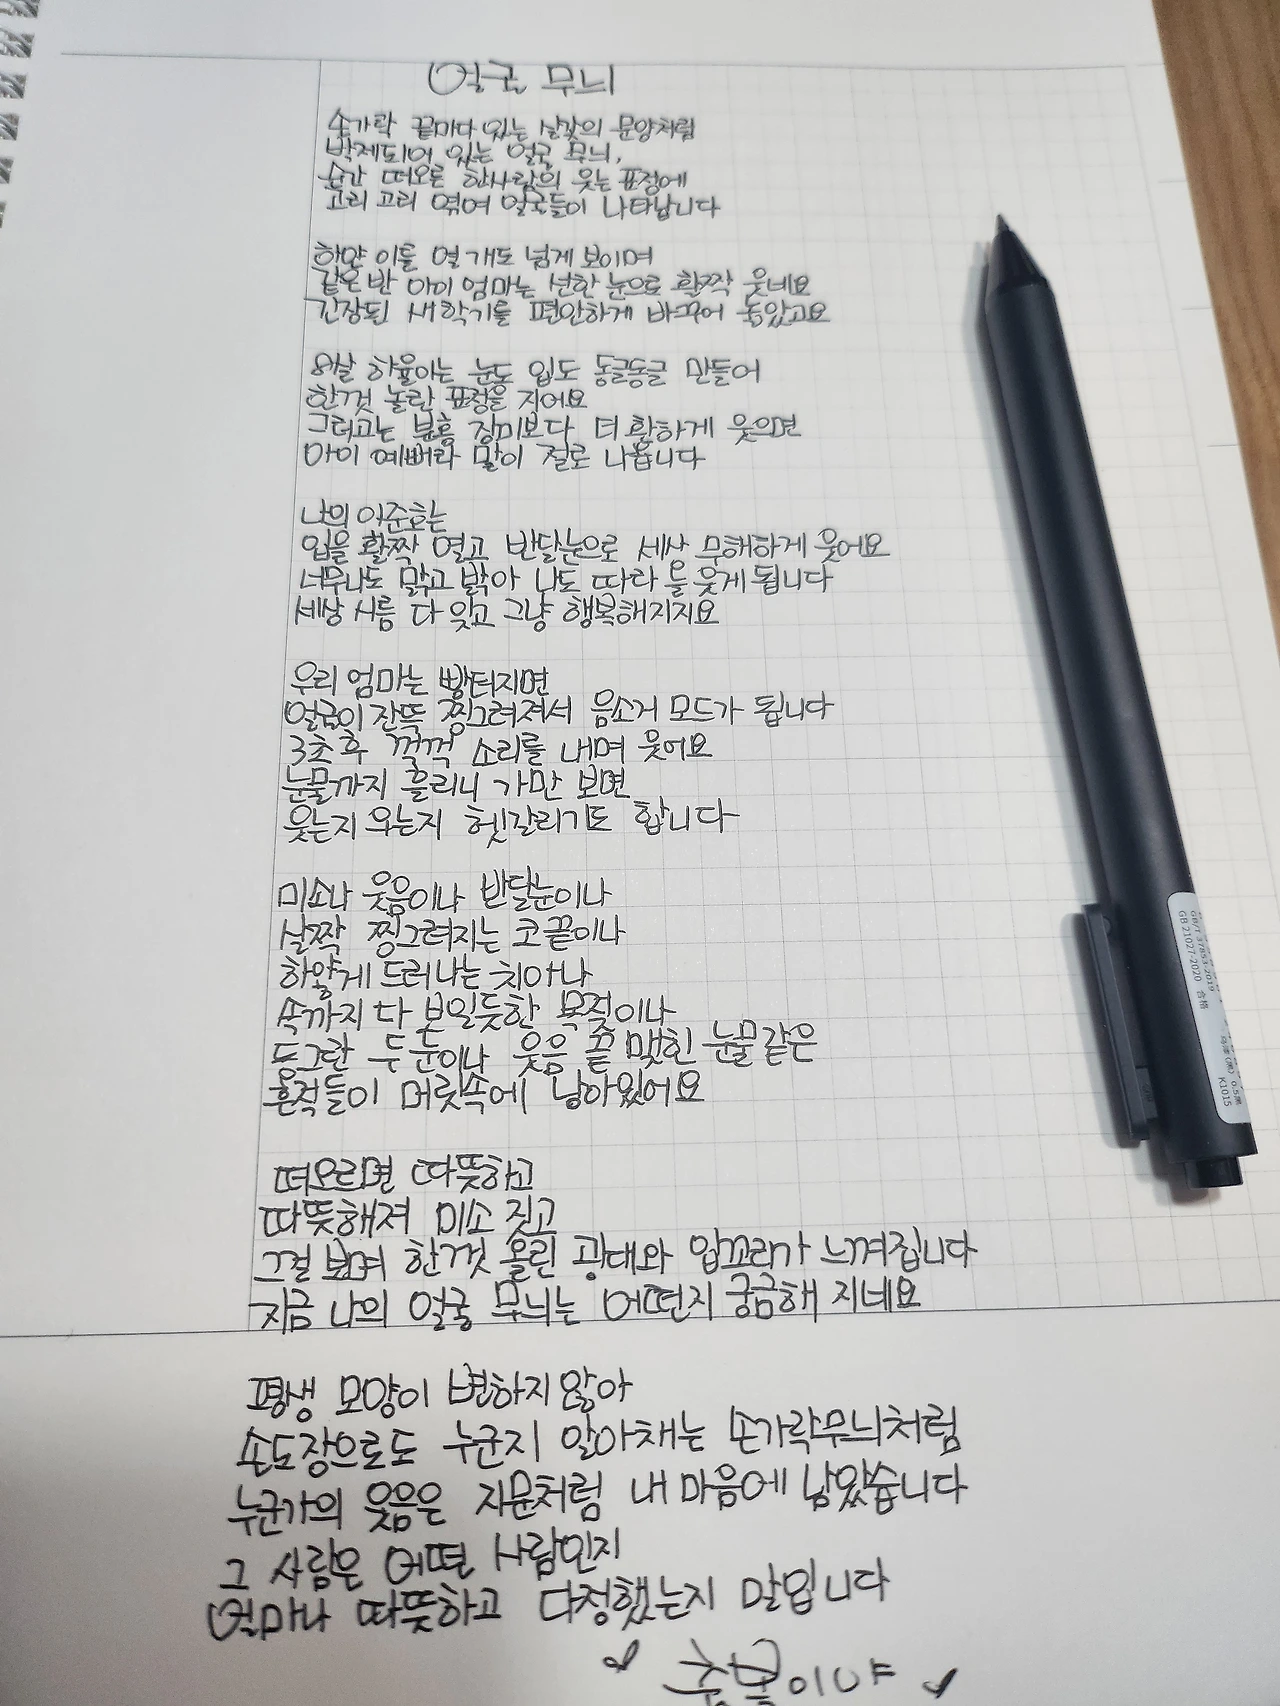 얼굴 무늬
손가락 끝마다 있는 살갗의 문양처럼
박제되어 있는 얼굴 무늬,
순간 떠오른 한사람의 웃는 표정에
꼬리 꼬리 엮여 얼굴들이 나타납니다
하얀 이를 열 개도 넘게 보이며
같은 반 아이 엄마는 선한 눈으로 활짝 웃네요
긴장된 새학기를 편안하게 바꾸어 놓았고요
8살 하율이는 눈도 입도 동글동글 만들어
한껏 놀란 표정을 지어요
그러고는 분홍 장미보다 더 환하게 웃으면
아이 예뻐라 말이 절로 나옵니다
나의 이준호는
입을 활짝 열고 반달눈으로 세상 무해하게 웃어요
너무나도 맑고 밝아 나도 따라 웃게 됩니다
세상 시름 다 잊고 그냥 행복해지지요
우리 엄마는 빵터지면
얼굴이 잔뜩 찡그려져서 음소거 모드가 됩니다
3초 후 꺽꺽 소리를 내며 웃어요
눈물까지 흘리니 가만 보면
웃는지 우는지 헷갈리기도 합니다
미소나 웃음이나 반달눈이나
살짝 찡그려지는 코끝이나
하얗게 드러나는 치아나
속까지 다 보일듯한 목젖이나
동그란 두 눈이나 웃음 끝 맺힌 눈물같은
흔적들이 머릿속에 남아있어요
떠오르면 따뜻하고
따뜻해져 미소 짓고
그걸 보며 한껏 올린 광대와 입꼬리가 느껴집니다
지금 나의 얼굴 무늬는 어떤지 궁금해 지네요
평생 모양이 변하지 않아
손도장으로도 누군지 알아채는 손가락무늬처럼
누군가의 웃음은 지문처럼 내 마음에 남았습니다
그 사람은 어떤 사람인지
얼마나 따뜻하고 다정했는지 말입니다
GB/T 37853-2019
GB 21027-2020 合格
K1015